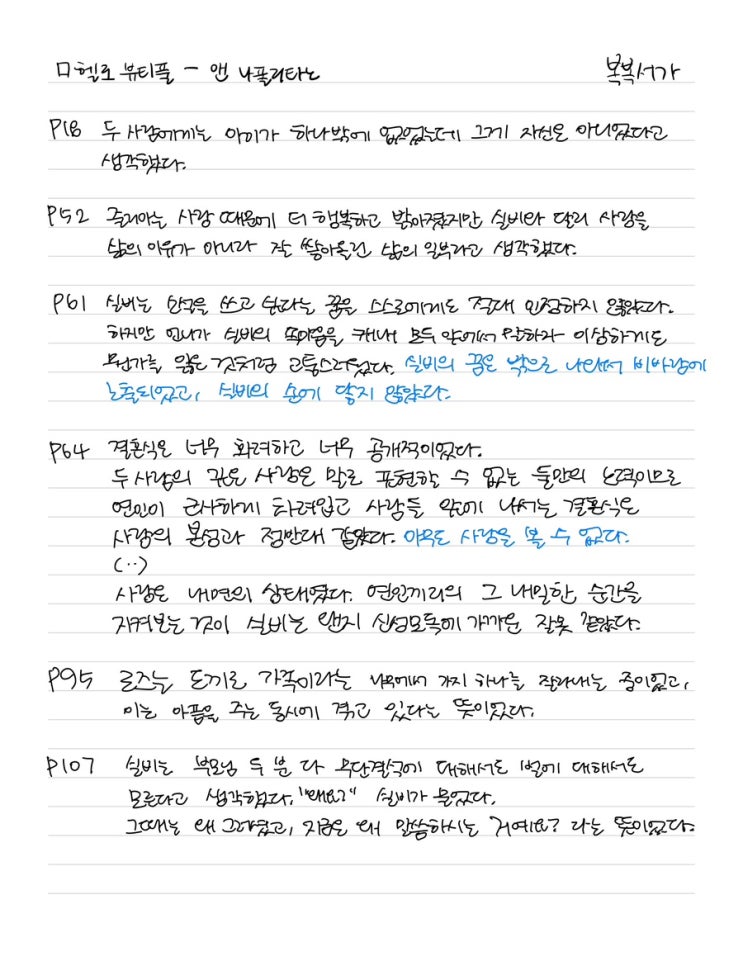 ㅁ 헬로 뷰티플 - 앤 나폴리타노
복복서가
P18 두 사람에게는 아이가 하나밖에 없었는데 그게 자신은 아니었다고
생각했다.
P52 줄리아는 사랑 때문에 더 행복하고 밝아졌지만 실비와 달리 사랑을
삶의 이유가 아니라 잘 쌓아올린 삶의 일부라고 생각했다.
P61 실비는 소설을 쓰고 싶다는 꿈을 스스로에게도 절대 인정하지 않았다.
하지만 언니가 실비의 속마음을 캐내 모두 앞에서 말하자 이상하게도
무언가를 잃은 것처럼 고통스러웠다. 실비의 꿈은 밖으로 나와서 비바람에
노출되었고, 실비의 손에 닿지 않았다.
P64 결혼식은 너무 화려하고 너무 공개적이었다.
두 사람의 깊은 사랑은 말로 표현할 수 없는 둘만의 영역이므로
연인이 근사하게 차려입고 사람들 앞에 나서는 결혼식은
사랑의 본성과 정반대 같았다. 아무도 사랑을 볼 수 없다.
(··)
사랑은 내면의 상태였다. 연인끼리의 그 내밀한 순간을
지켜보는 것이 실비는 왠지 신성모독에 가까운 잘못 같았다.
P95 로즈는 도끼로 가족이라는 나무에서 가지 하나를 잘라내는 중이었고,
이는 아픔을 주는 동시에 겪고 있다는 뜻이었다.
P107 실비는 부모님 두 분 다 무단결석에 대해서도 벌에 대해서도
모른다고 생각했다. "왜요?" 실비가 물었다.
그때는 왜 그러셨고, 지금은 왜 말씀하시는 거예요? 라는 뜻이었다.